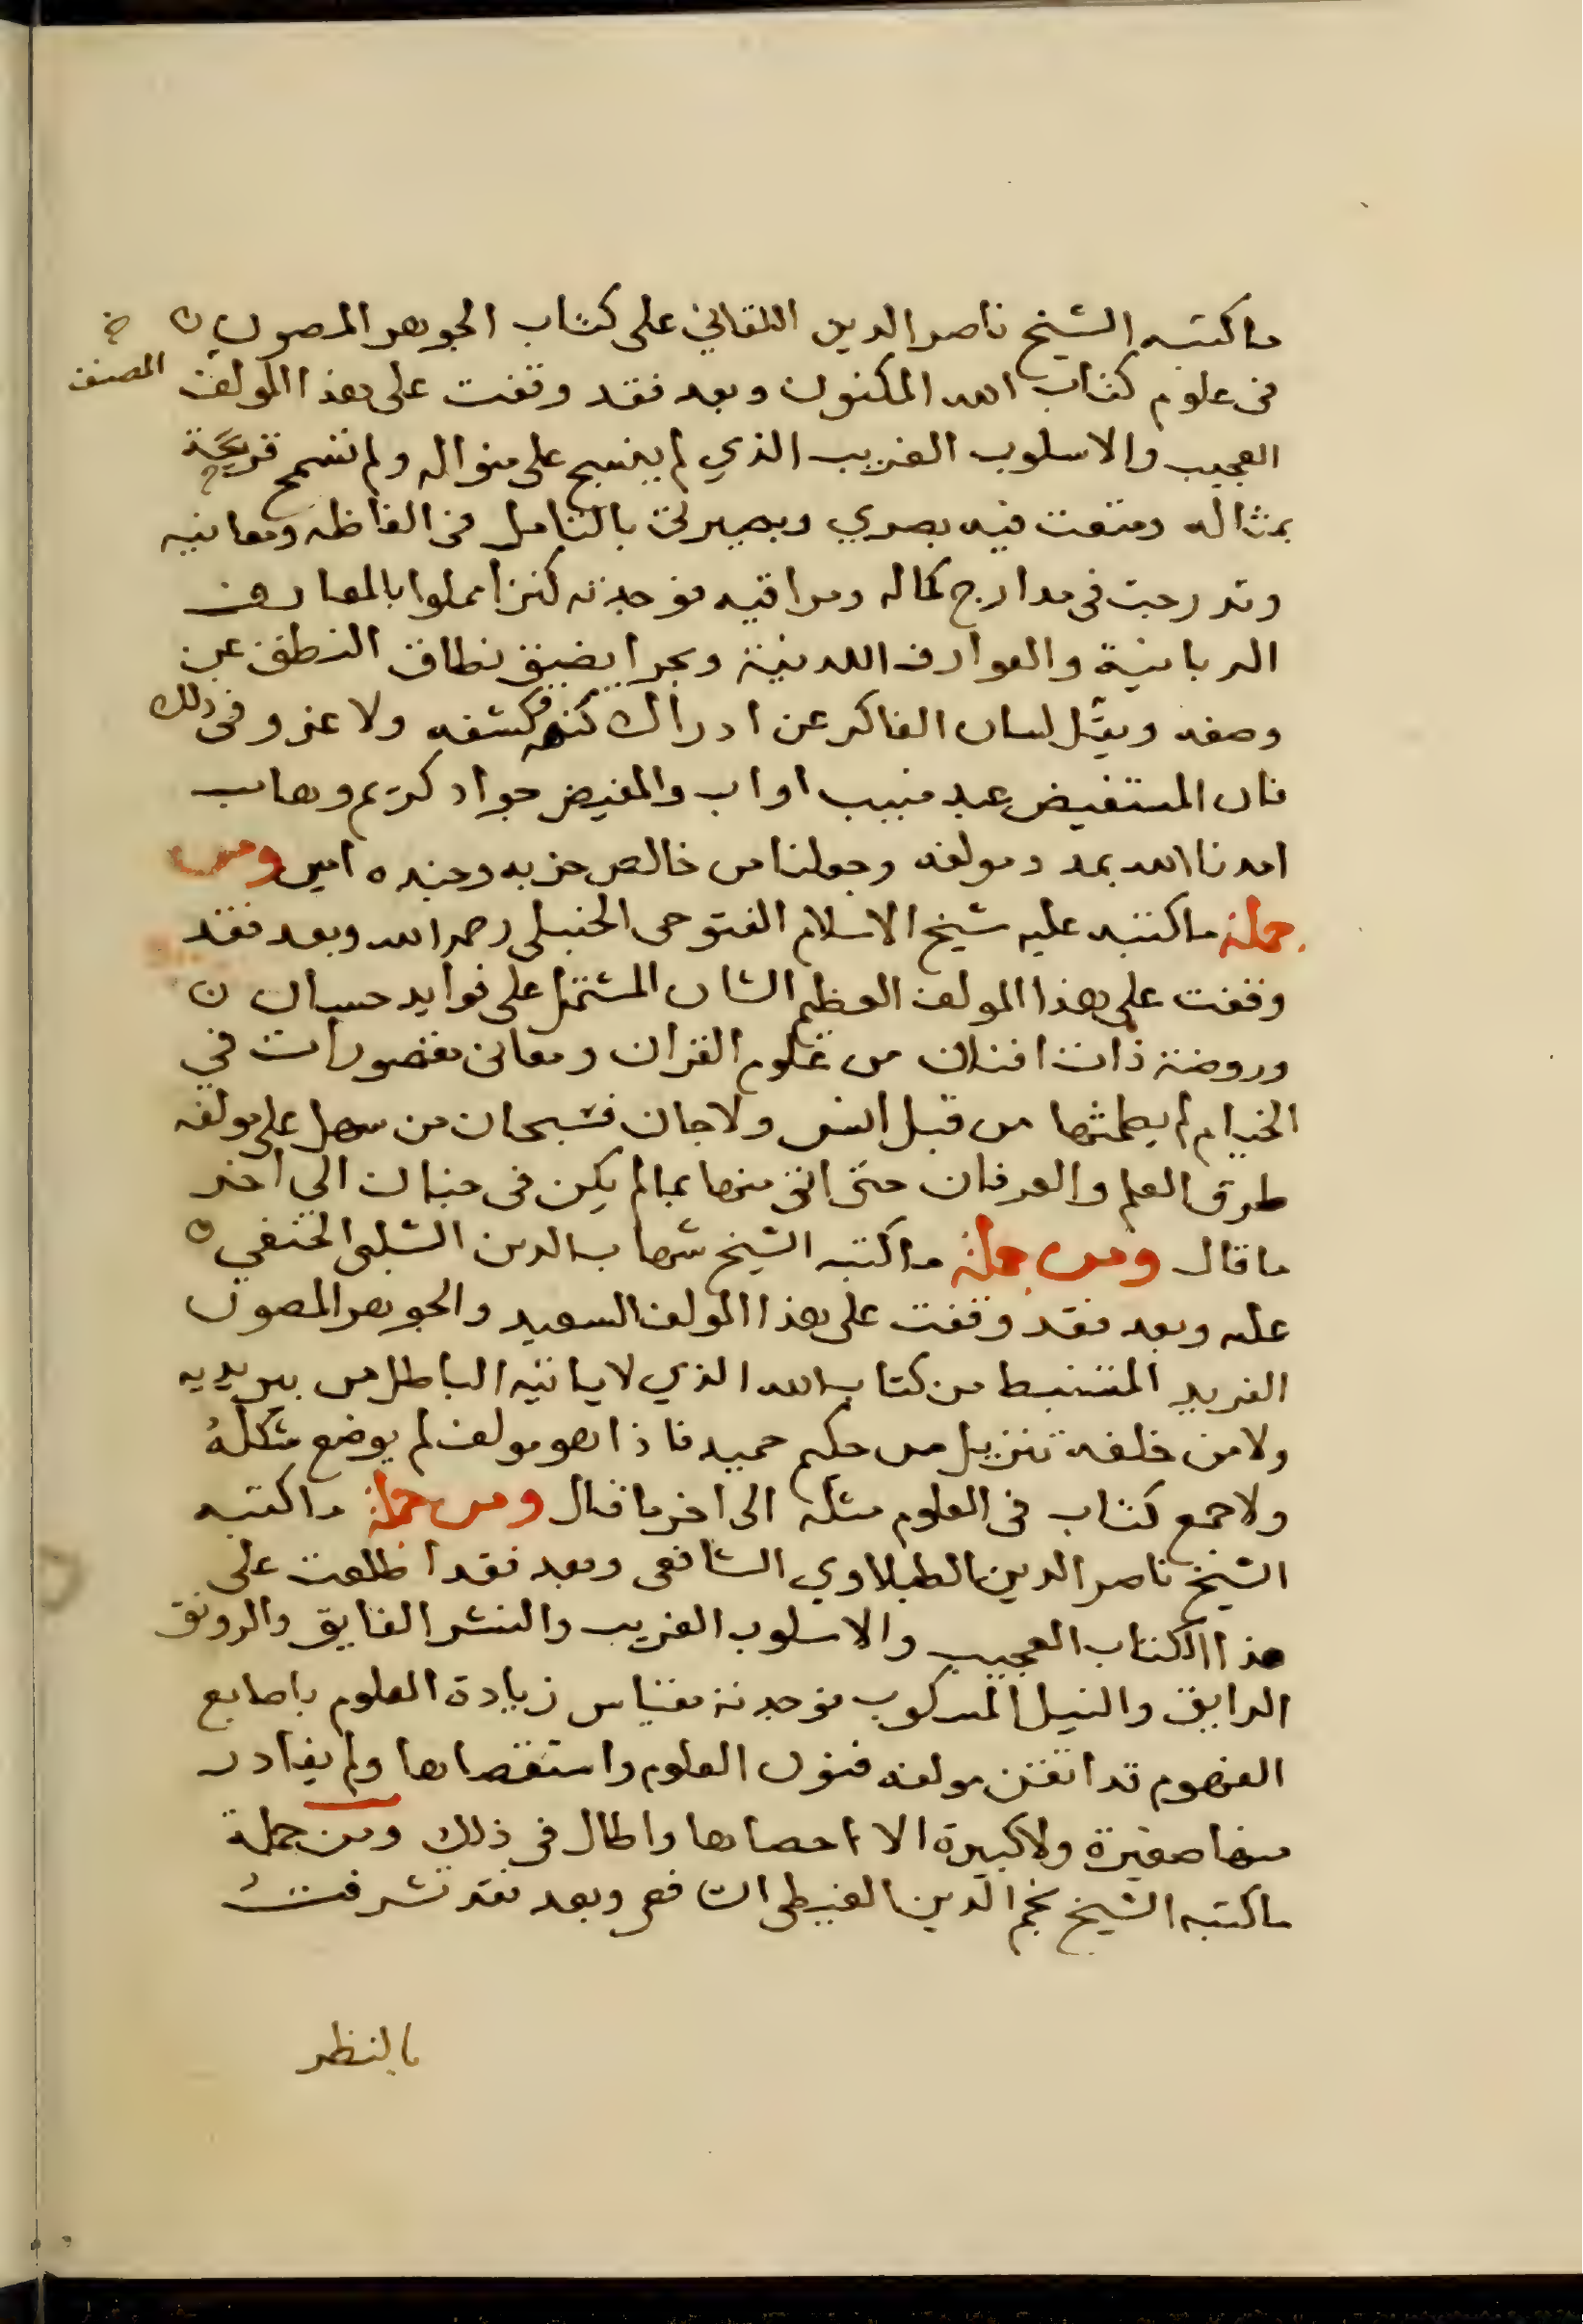 ما كتبه الشيخ ناصر الدين اللقاني على كتاب الجوهر المصون
في علوم كتاب الله المكنون وبعد فقد وقفت على هذا المولف المصنف
العجيب والاسلوب الغريب الذي لم ينسج على منواله ولم تسمح قريحة
بمثاله ومتعت فيه بصري وبصيرتي بالتامل في الفاظه ومعانيه
وتدرجت في مدارج كماله ومراقيه فوجدته كنزا مملوا بالمعارف
الربانية والعوارف اللدنية وبحرا يضيق نطاق النطق عن
وصفه ويكل لسان الفاكر عن ادراك كنه كشفه ولا غرو في ذلك
فان المستفيض عبد منيب اواب والمفيض جواد كريم وهاب
امدنا الله بمدد مولفه وجعلنا من خالص حزبه وجنده امين ومن
جملة ما كتبه عليه شيخ الاسلام الفتوحي الحنبلي رحمه الله وبعد فقد
وقفت على هذا المولف العظيم الشان المشتمل على فوايد حسان
وروضة ذات افنان من علوم القران ومعاني مقصورات في
الخيام لم يطمثها من قبل انس ولا جان فسبحان من سهل على مولفه
طرق العلم والعرفان حتى اتى منها بما لم يكن في جنان الي اخر
ما قال ومن جملة ما كتبه الشيخ شهاب الدين الشلبي الحنفي
عليه وبعد فقد وقفت على هذا المولف السعيد والجوهر المصون
الفريد المستنبط من كتاب الله الذي لا ياتيه الباطل من بين يديه
ولا من خلفه تنزيل من حكيم حميد فاذا هو مولف لم يوضع شكله
ولا جمع كتاب في العلوم مثله الى اخر ما قال ومن جملة ما كتبه
الشيخ ناصر الدين الطبلاوي الشافعي وبعد فقد اطلعت على
هذا الكتاب العجيب والاسلوب الغريب والنشر الفايق والرونق
الرايق والنيل المسكوب فوجدته مقياس زيادة العلوم باصابع
الفهوم قد اتقن مولفه فنون العلوم واستقصاها ولم يغادر
منها صغيرة ولا كبيرة الا احصاها واطال في ذلك ومن جملة
ما كتبه الشيخ نجم الدين الغيطي الشافعي وبعد فقد تشرفت
بالنظر